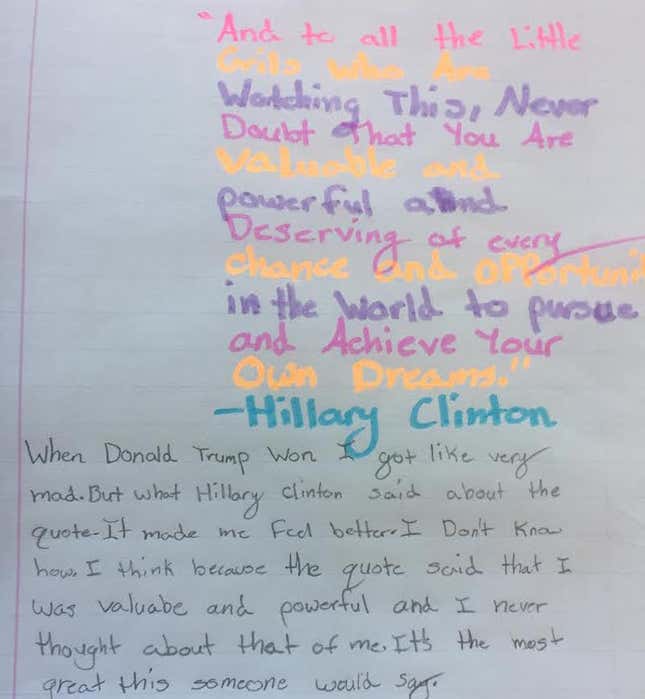 "And to all the Little
Grils who Are
Watching This, Never
Doubt That You Are
Valuable and
powerful and
Deserving of every
chance and opportuni
in the World to pursue
and Achieve Your
Own Dreams."
-Hillary Clinton
When Donald Trump Won I got like very
mad. But what Hillary Clinton said about the
quote-It made me Feel better. I Don't Know
how. I think because the quote said that I
was valuabe and powerful and I never
thought about that of me. It's the most
great this someone would say.